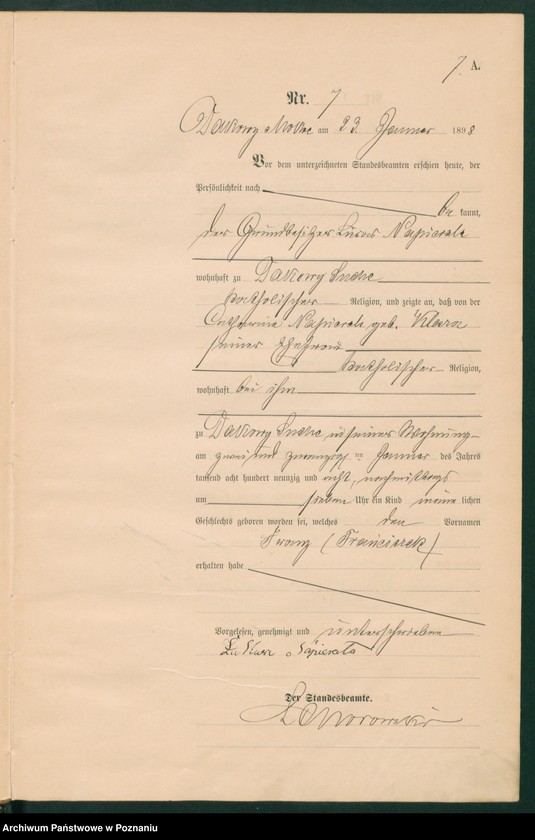 7. A.
Nr. 7
Dakowy Mokre am 23 Januar 1898
Vor dem unterzeichneten Standesbeamten erschien heute, der
Persönlichkeit nach
be kannt,
der Grundbesitzer Lucas Napierala
wohnhaft zu Dakowy Suche
katholischer Religion, und zeigte an, daß von der
Catharine Napierala geb. Klara
seiner Ehefrau
katholischer Religion,
wohnhaft bei ihm
zu Dakowy Suche in seiner Wohnung
am zwei und zwanzigsten Januar des Jahres
tausend acht hundert neunzig und acht, nachmittags
um sieben Uhr ein Kind männ lichen
Geschlechts geboren worden sei, welches den Vornamen
Franz (Franciszek)
erhalten habe
Vorgelesen, genehmigt und unterschrieben
Napierala
Der Standesbeamte.
Archiwum Państwowe w Poznaniu